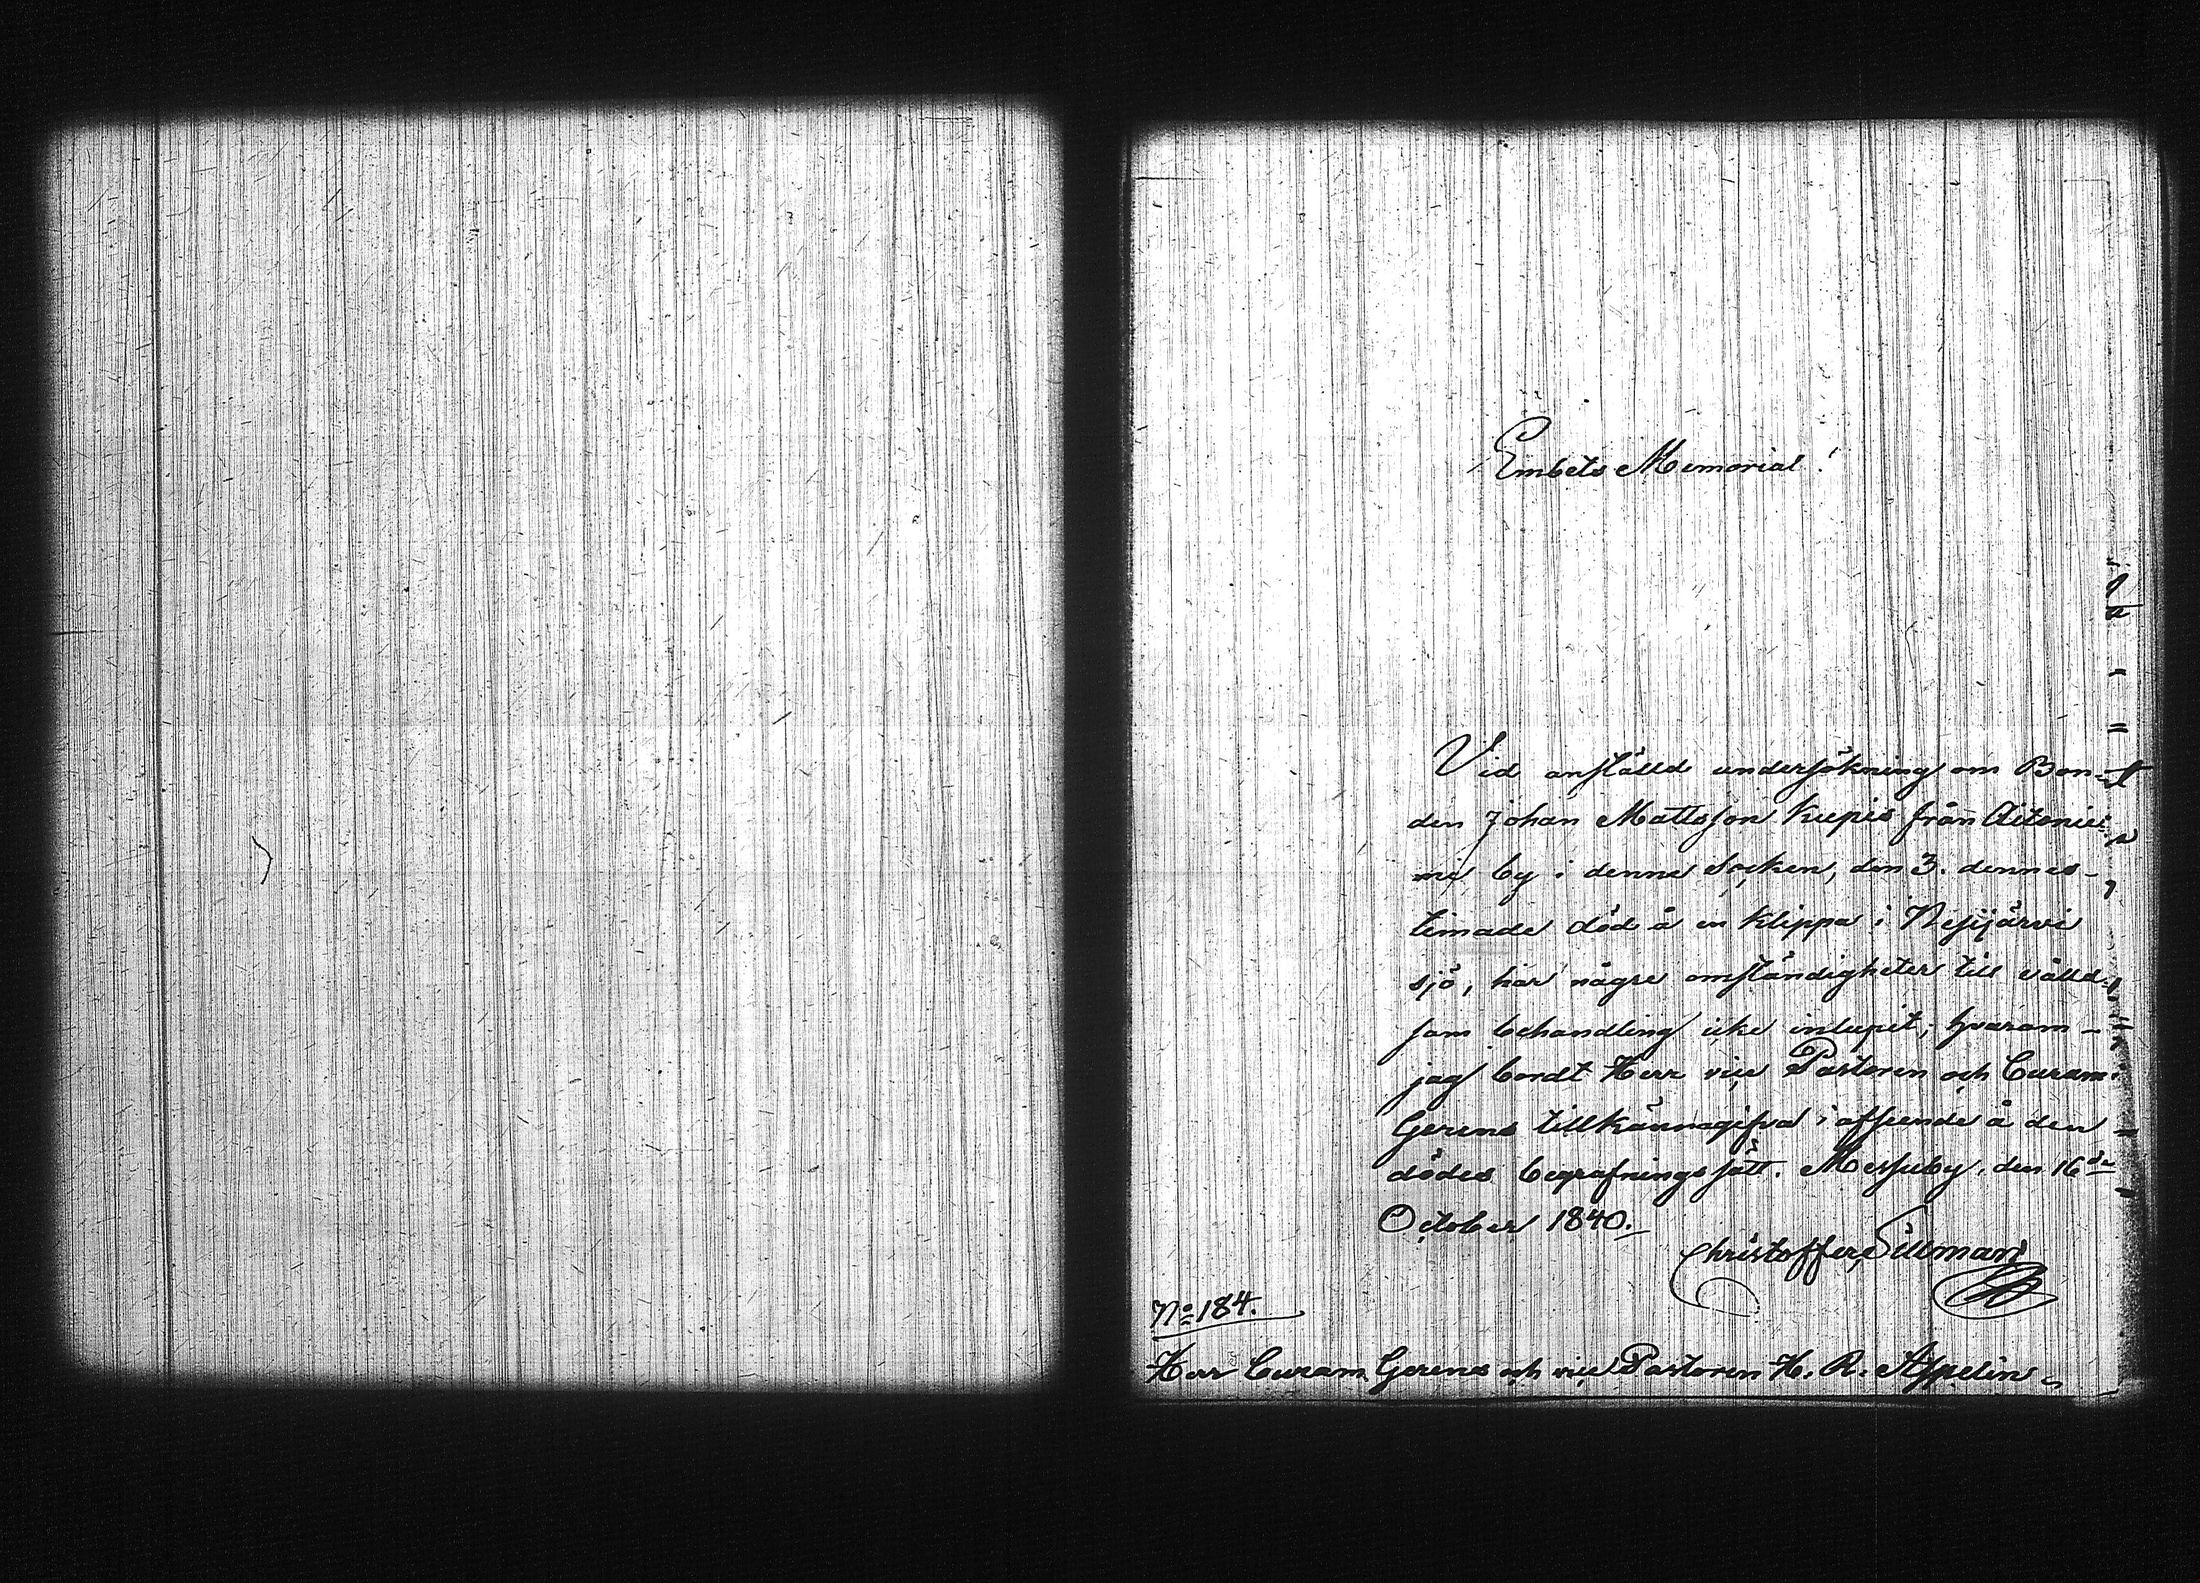 Embets Memorial!
Vid anställd undersökning om Bon-
den Johan Mattsson Kupis från Aitonie-
mi by i denna Socken, den 3. dennes
timade död å en klippa i Nesijärvi
sjö, har några omständigheter till våld-
sam behandling icke inlupit; hvarom
jag bordt Herr vice Pastoren och Curam
Gerens tillkännagifva i afseende å den
dödes begrafningssätt. Messuby den 16de
October 1840.
Christoffer Sillman
No 184.
Herr Curam Gerens och vice Pastoren H. R. Aspelin